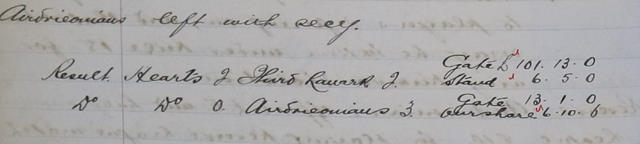 Airdrieonians left with secy.
Gate £ 101. 13. 0
Result. Hearts 2 Third Lanark 2. Stand 6. 5. 0
Do Do 0. Airdrieonians 3. Gate 13. 1. 0
our share 6. 10. 6